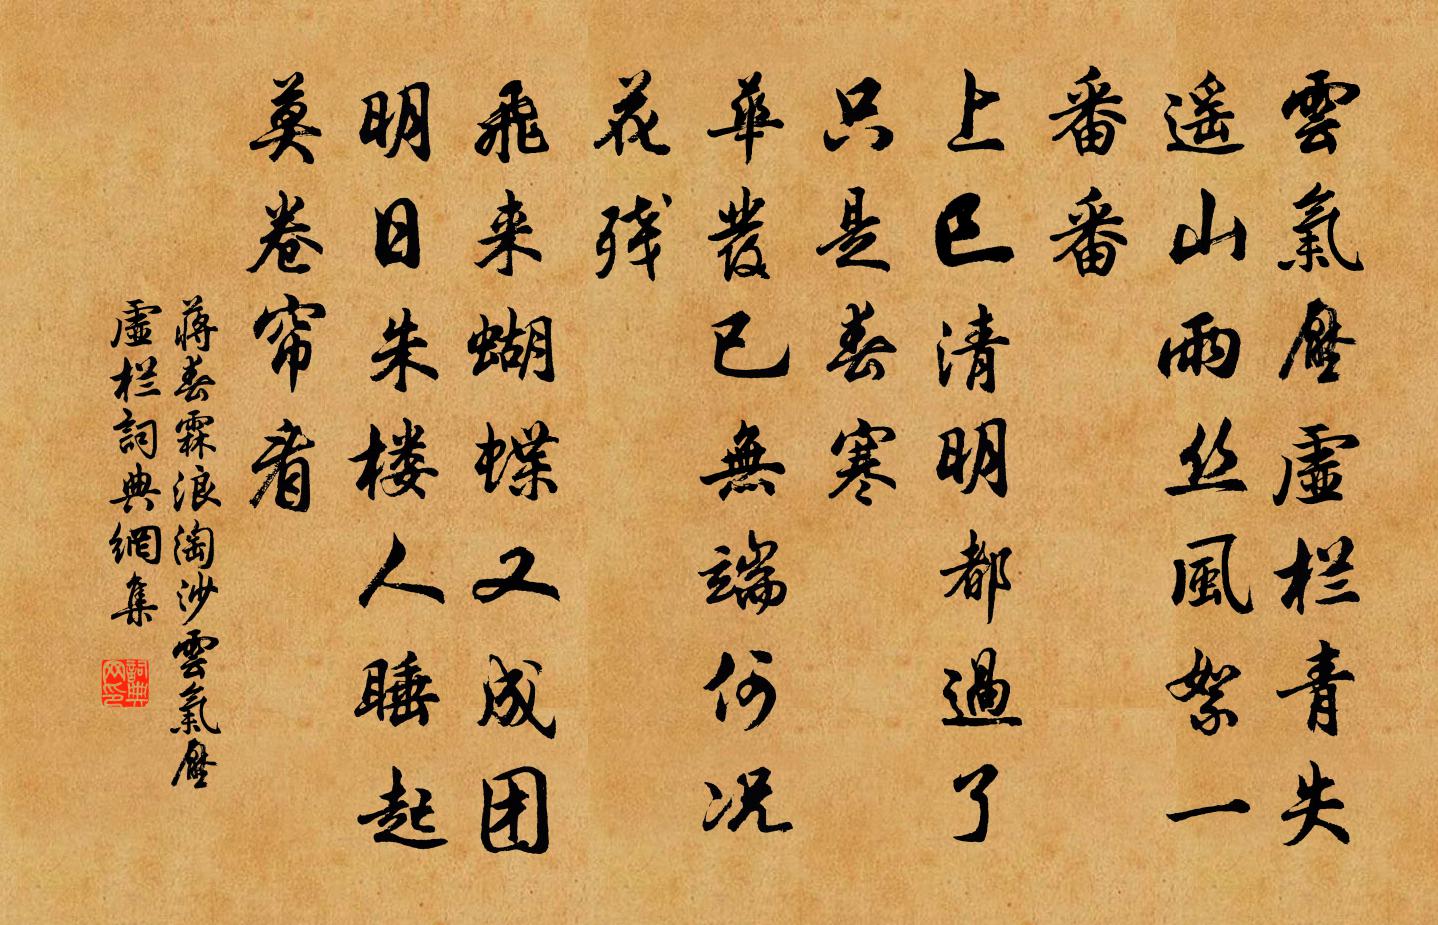 雲氣壓虛栏青失
遥山雨丝風絮一
番番
上巳清明都過了
只是春寒
華發已無端何况
花残
飛来蝴蝶又成团
明日朱楼人睡起
莫卷帘看
蒋春霖浪淘沙雲氣壓
虛栏詞典網集
詞典
网印